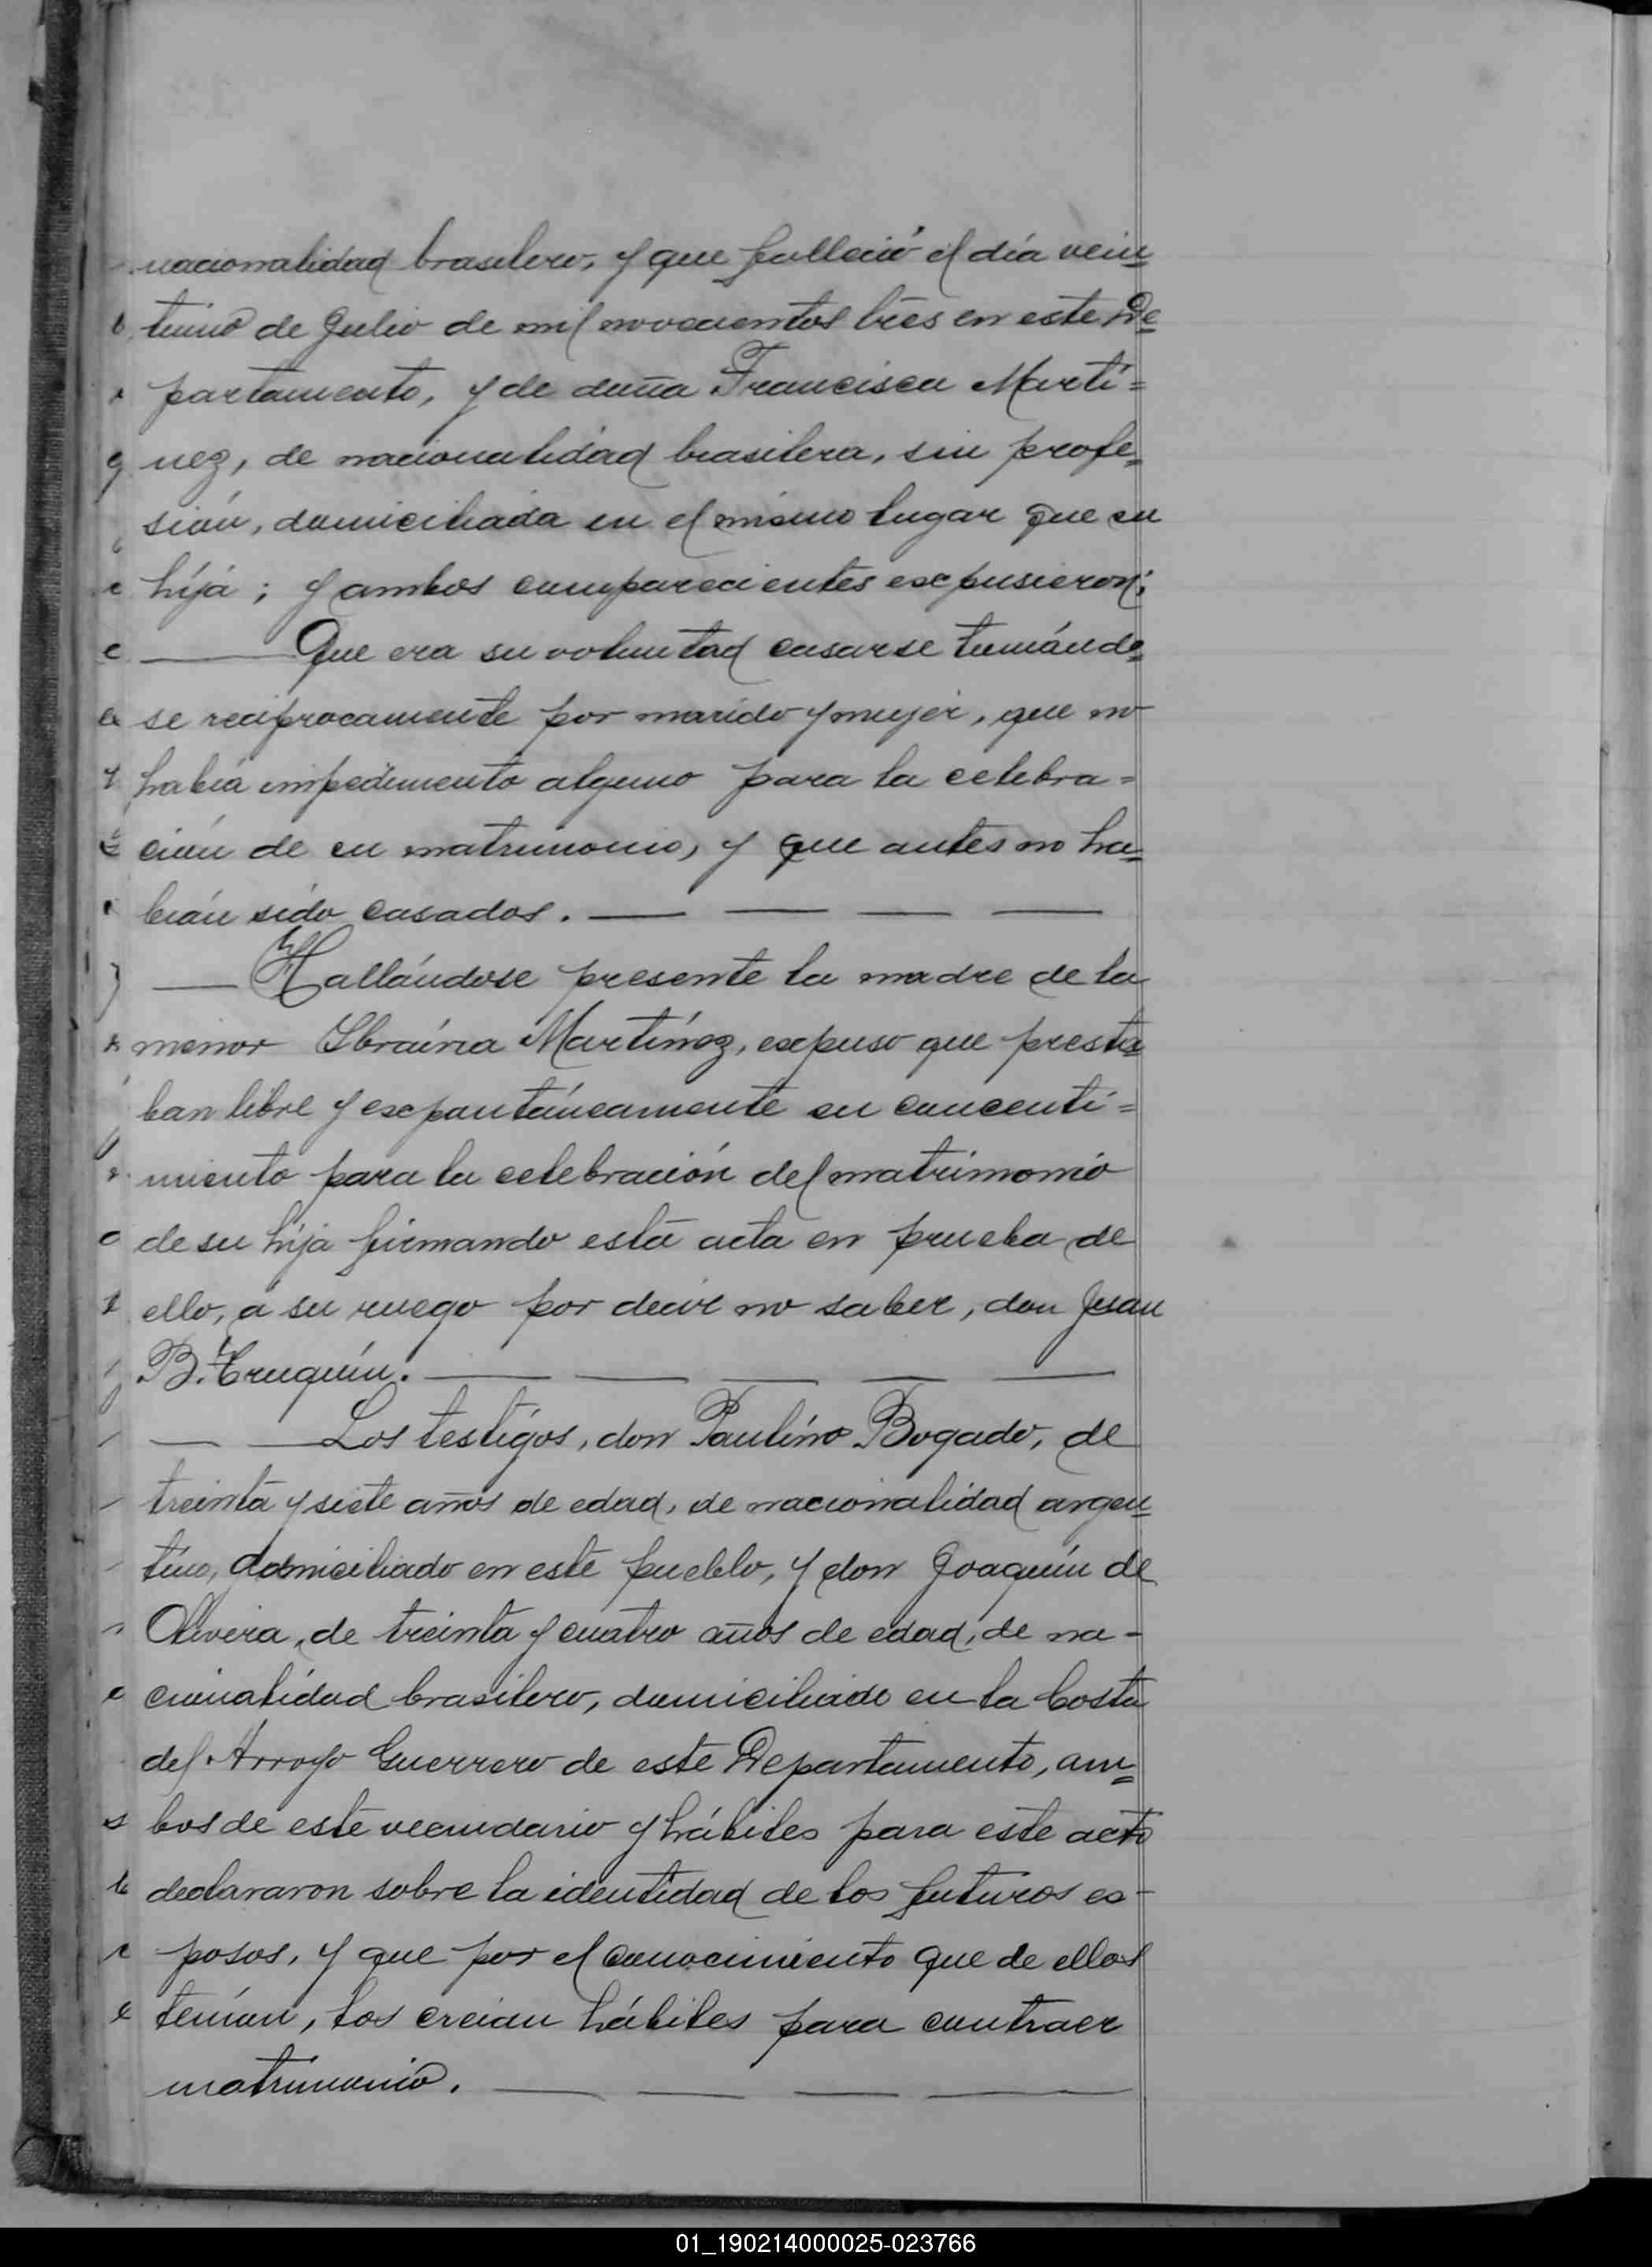 nacionalidad brasilero, y que falleció el día vein=
tiuno de Julio de mil novecientos tres en este De=
partamento, y de doña Francisca Martí=
nez, de nacionalidad brasilera, sin profe=
sión, domiciliada en el mismo lugar que su
hija; y ambos comparecientes expusieron:
Que era su voluntad casarse tomándo=
se reciprocamente por marido y mujer, que no
había impedimento alguno para la celebra=
ción de su matrimonio, y que antes no ha=
bían sido casados.
Hallándose presente la madre de la
menor Ibraína Martínez, expuso que presta
ban libre y expontáneamente su concenti=
miento para la celebración del matrimonio
de su hija firmando esta acta en prueba de
ello, a su ruego por decir no saber, don Juan
B.
Los testigos, don Paulino Bogado, de
treinta y siete años de edad, de nacionalidad argen=
tino, domiciliado en este pueblo, y don Joaquín de
Olivera, de treinta y cuatro años de edad, de na-
cionalidad brasilero, domiciliado en la Costa
del Arroyo Guerrero de este Departamento, am=
bos de este vecindario y hábiles para este acto
declararon sobre la identidad de los futuros es-
posos, y que por el conocimiento que de ellos
tenían, los creian hábiles para contraer
matrimonio.
01_190214000025-023766